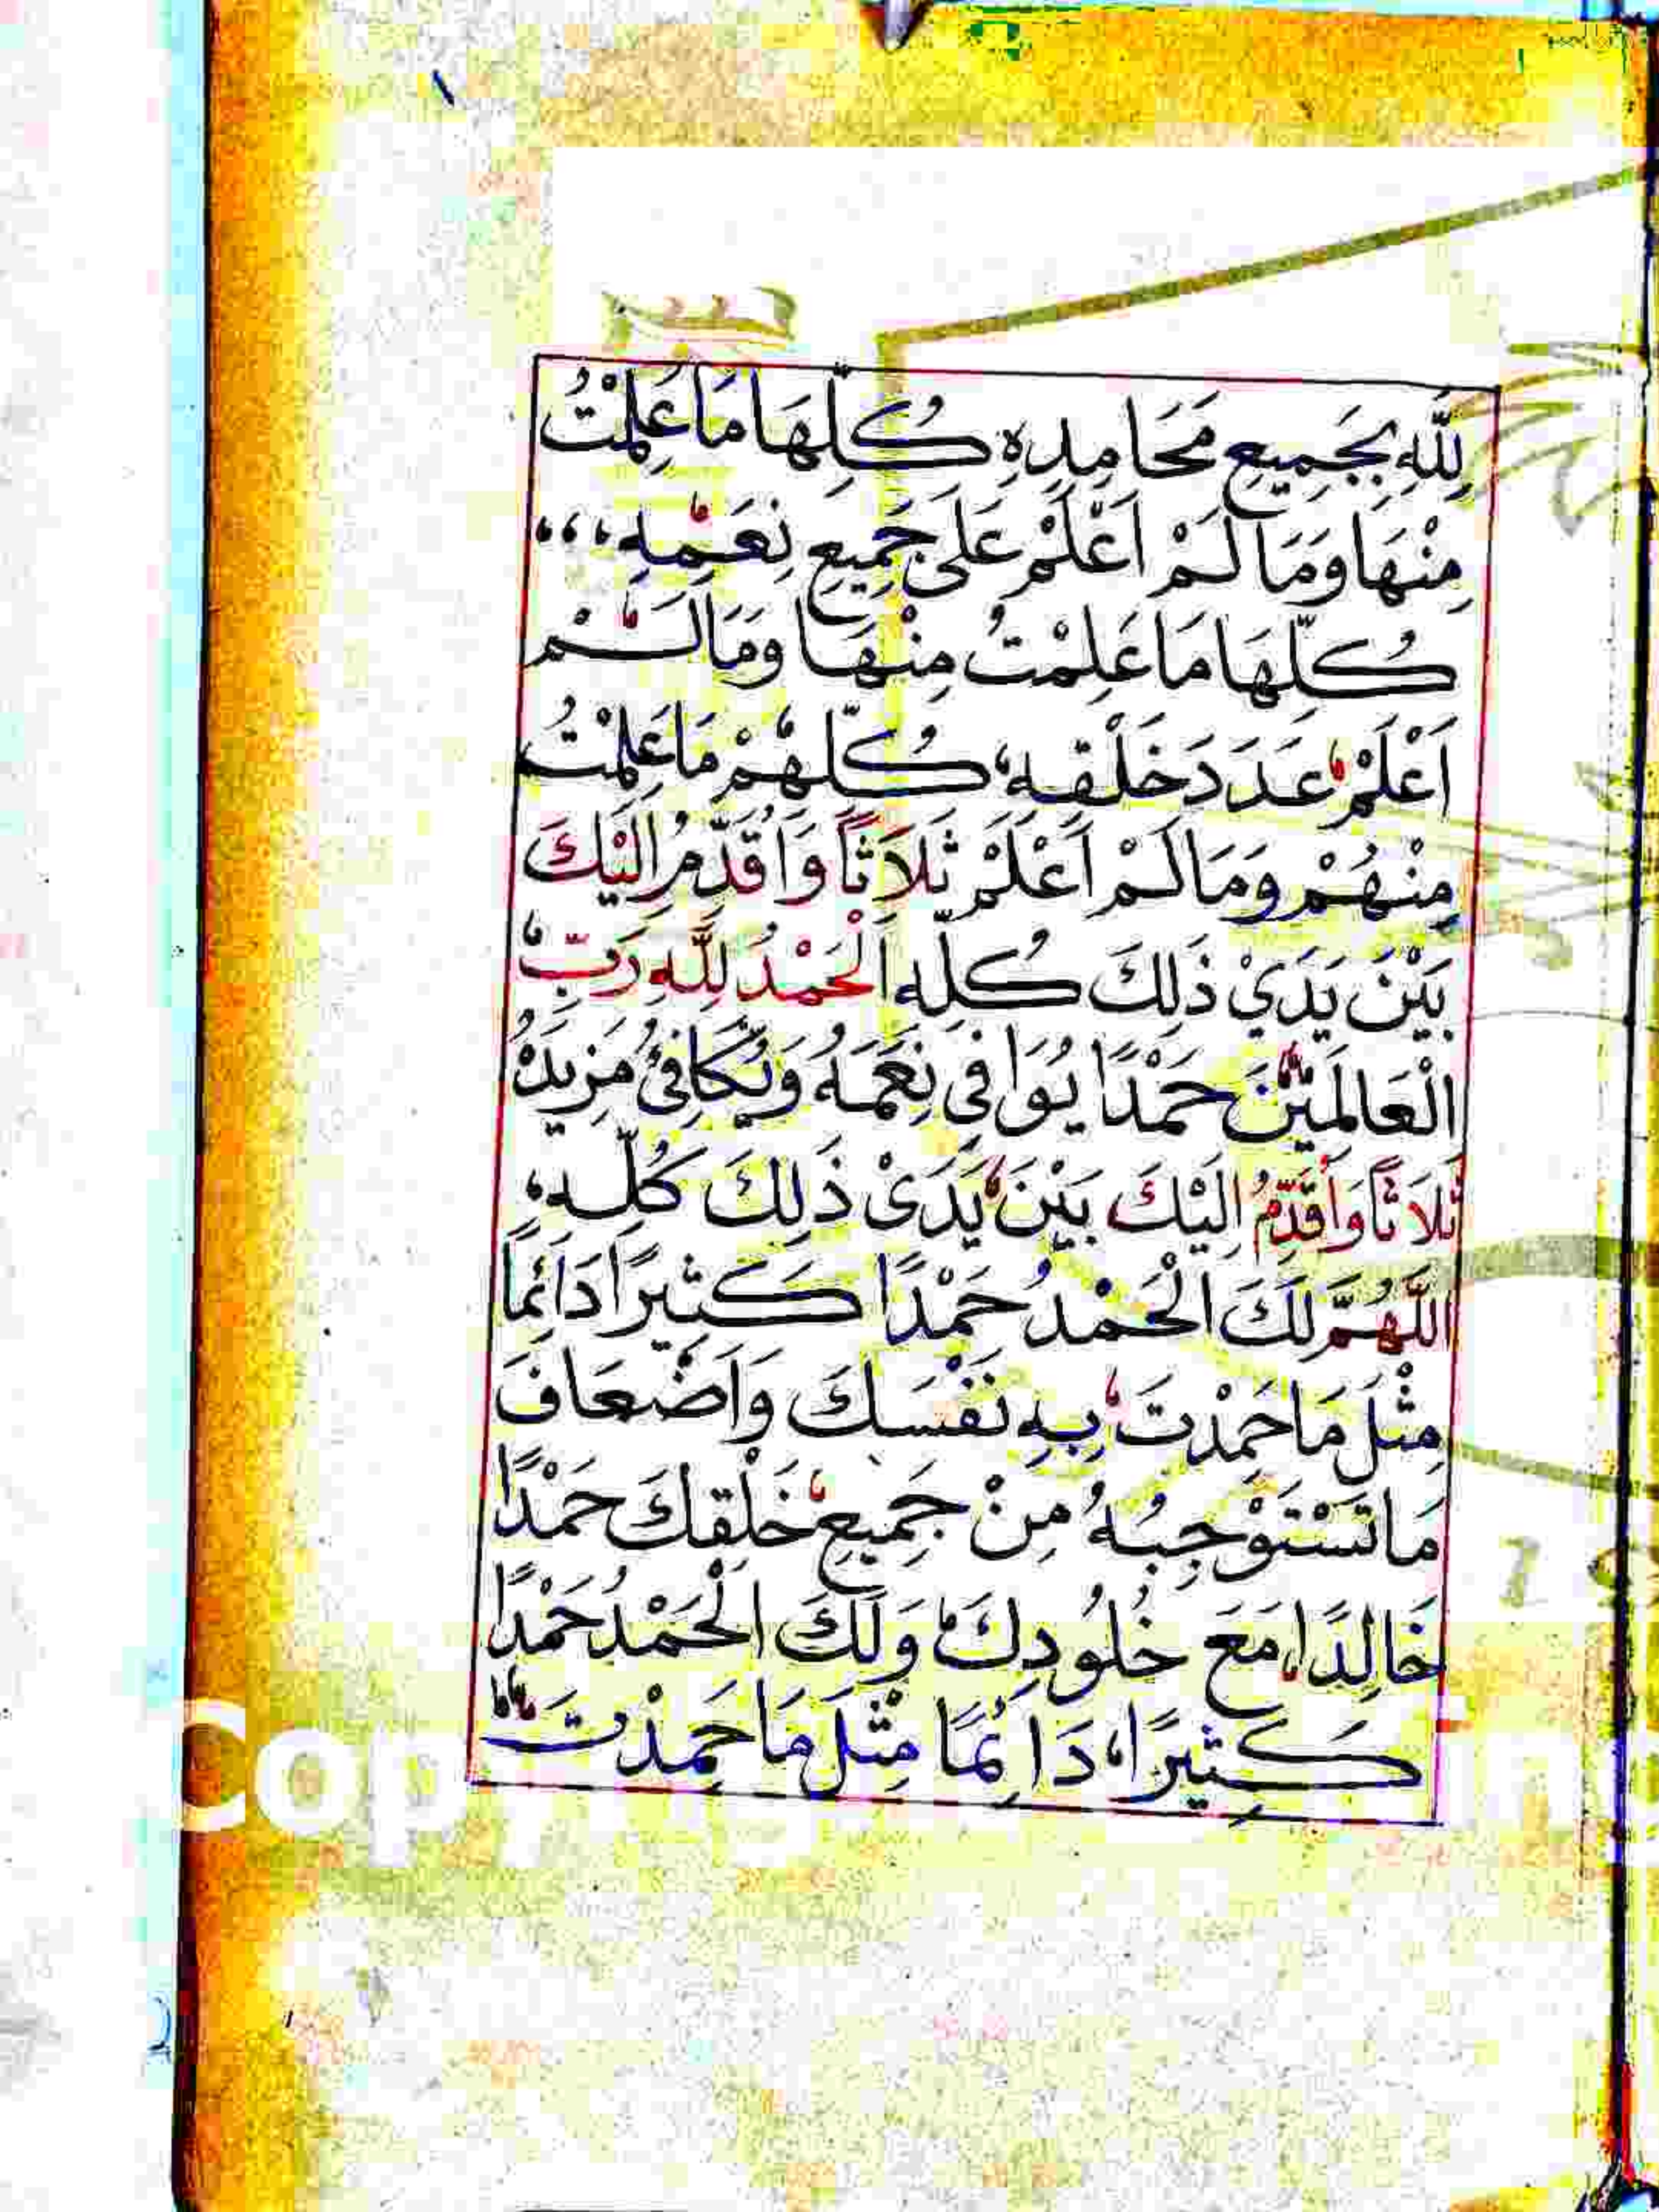 لِلّٰهِ بِجَمِيعِ مَحَامِدِهِ كُلِّهَا مَا عَلِمْتُ
مِنْهَا وَمَا لَمْ اَعْلَمْ عَلَى جَمِيعِ نِعَمِهِ،،،
كُلِّهَا مَا عَلِمْتُ مِنْهَا وَمَا لَمْ
اَعْلَمْ عَدَدَ خَلْقِهِ، كُلِّهِمْ مَا عَلِمْتُ
مِنْهُمْ وَمَا لَمْ اَعْلَمْ ثَلَاثًا وَاُقَدِّمُ اِلَيْكَ
بَيْنَ يَدَيْ ذَلِكَ كُلِّهِ اَلْحَمْدُ لِلّٰهِ رَبِّ
الْعَالَمِيْنَ حَمْدًا يُوَافِي نِعَمَهُ وَيُكَافِئُ مَزِيدَهُ
ثَلَاثًا وَاُقَدِّمُ اِلَيْكَ بَيْنَ يَدَىْ ذَلِكَ كُلِّهِ،
اللّٰهُمَّ لَكَ الْحَمْدُ حَمْدًا كَثِيرًا دَائِمًا
مِثْلَ مَا حَمِدْتَ بِهِ نَفْسَكَ وَاَضْعَافَ
مَا تَسْتَوْجِبُهُ مِنْ جَمِيعِ خَلْقِكَ حَمْدًا
خَالِدًا، مَعَ خُلُودِكَ وَلَكَ الْحَمْدُ حَمْدًا
كَثِيرًا، دَائِمًا مِثْلَ مَا حَمِدْتَ